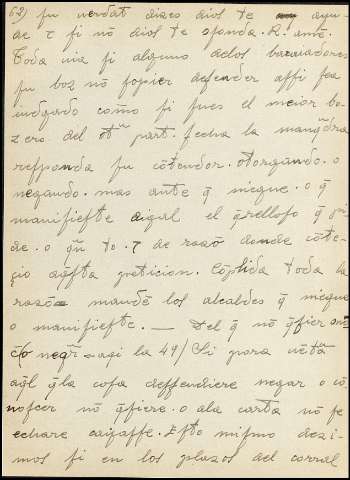 62) su verdat dizes dios te ayu-
de τ si nō dios te
Toda via si alguno delos
su boz nō defender assi sea
iudgado como si fues el meior bo-
zero del part. fecha la
responda su cōtendor. otorgando. o
negando. mas ante q̄ niegue. o q̄
manifieste aiqual el q̄relloso q̄
de. o to. τ de razō donde cōte-
çio aq̄sta peticion. Cōplida toda la
razō mandē los alcaldes q̄ niegue
o manifieste. — Del q̄ nō q̄sier
o negr̄ - aqi la 49/ Si para
aq̄l q̄la cosa deffendiere negar o cō
noscer nō q̄siere. o ala carta nō se
echare Esto mismo dezi-
mos si en los plazos del corral